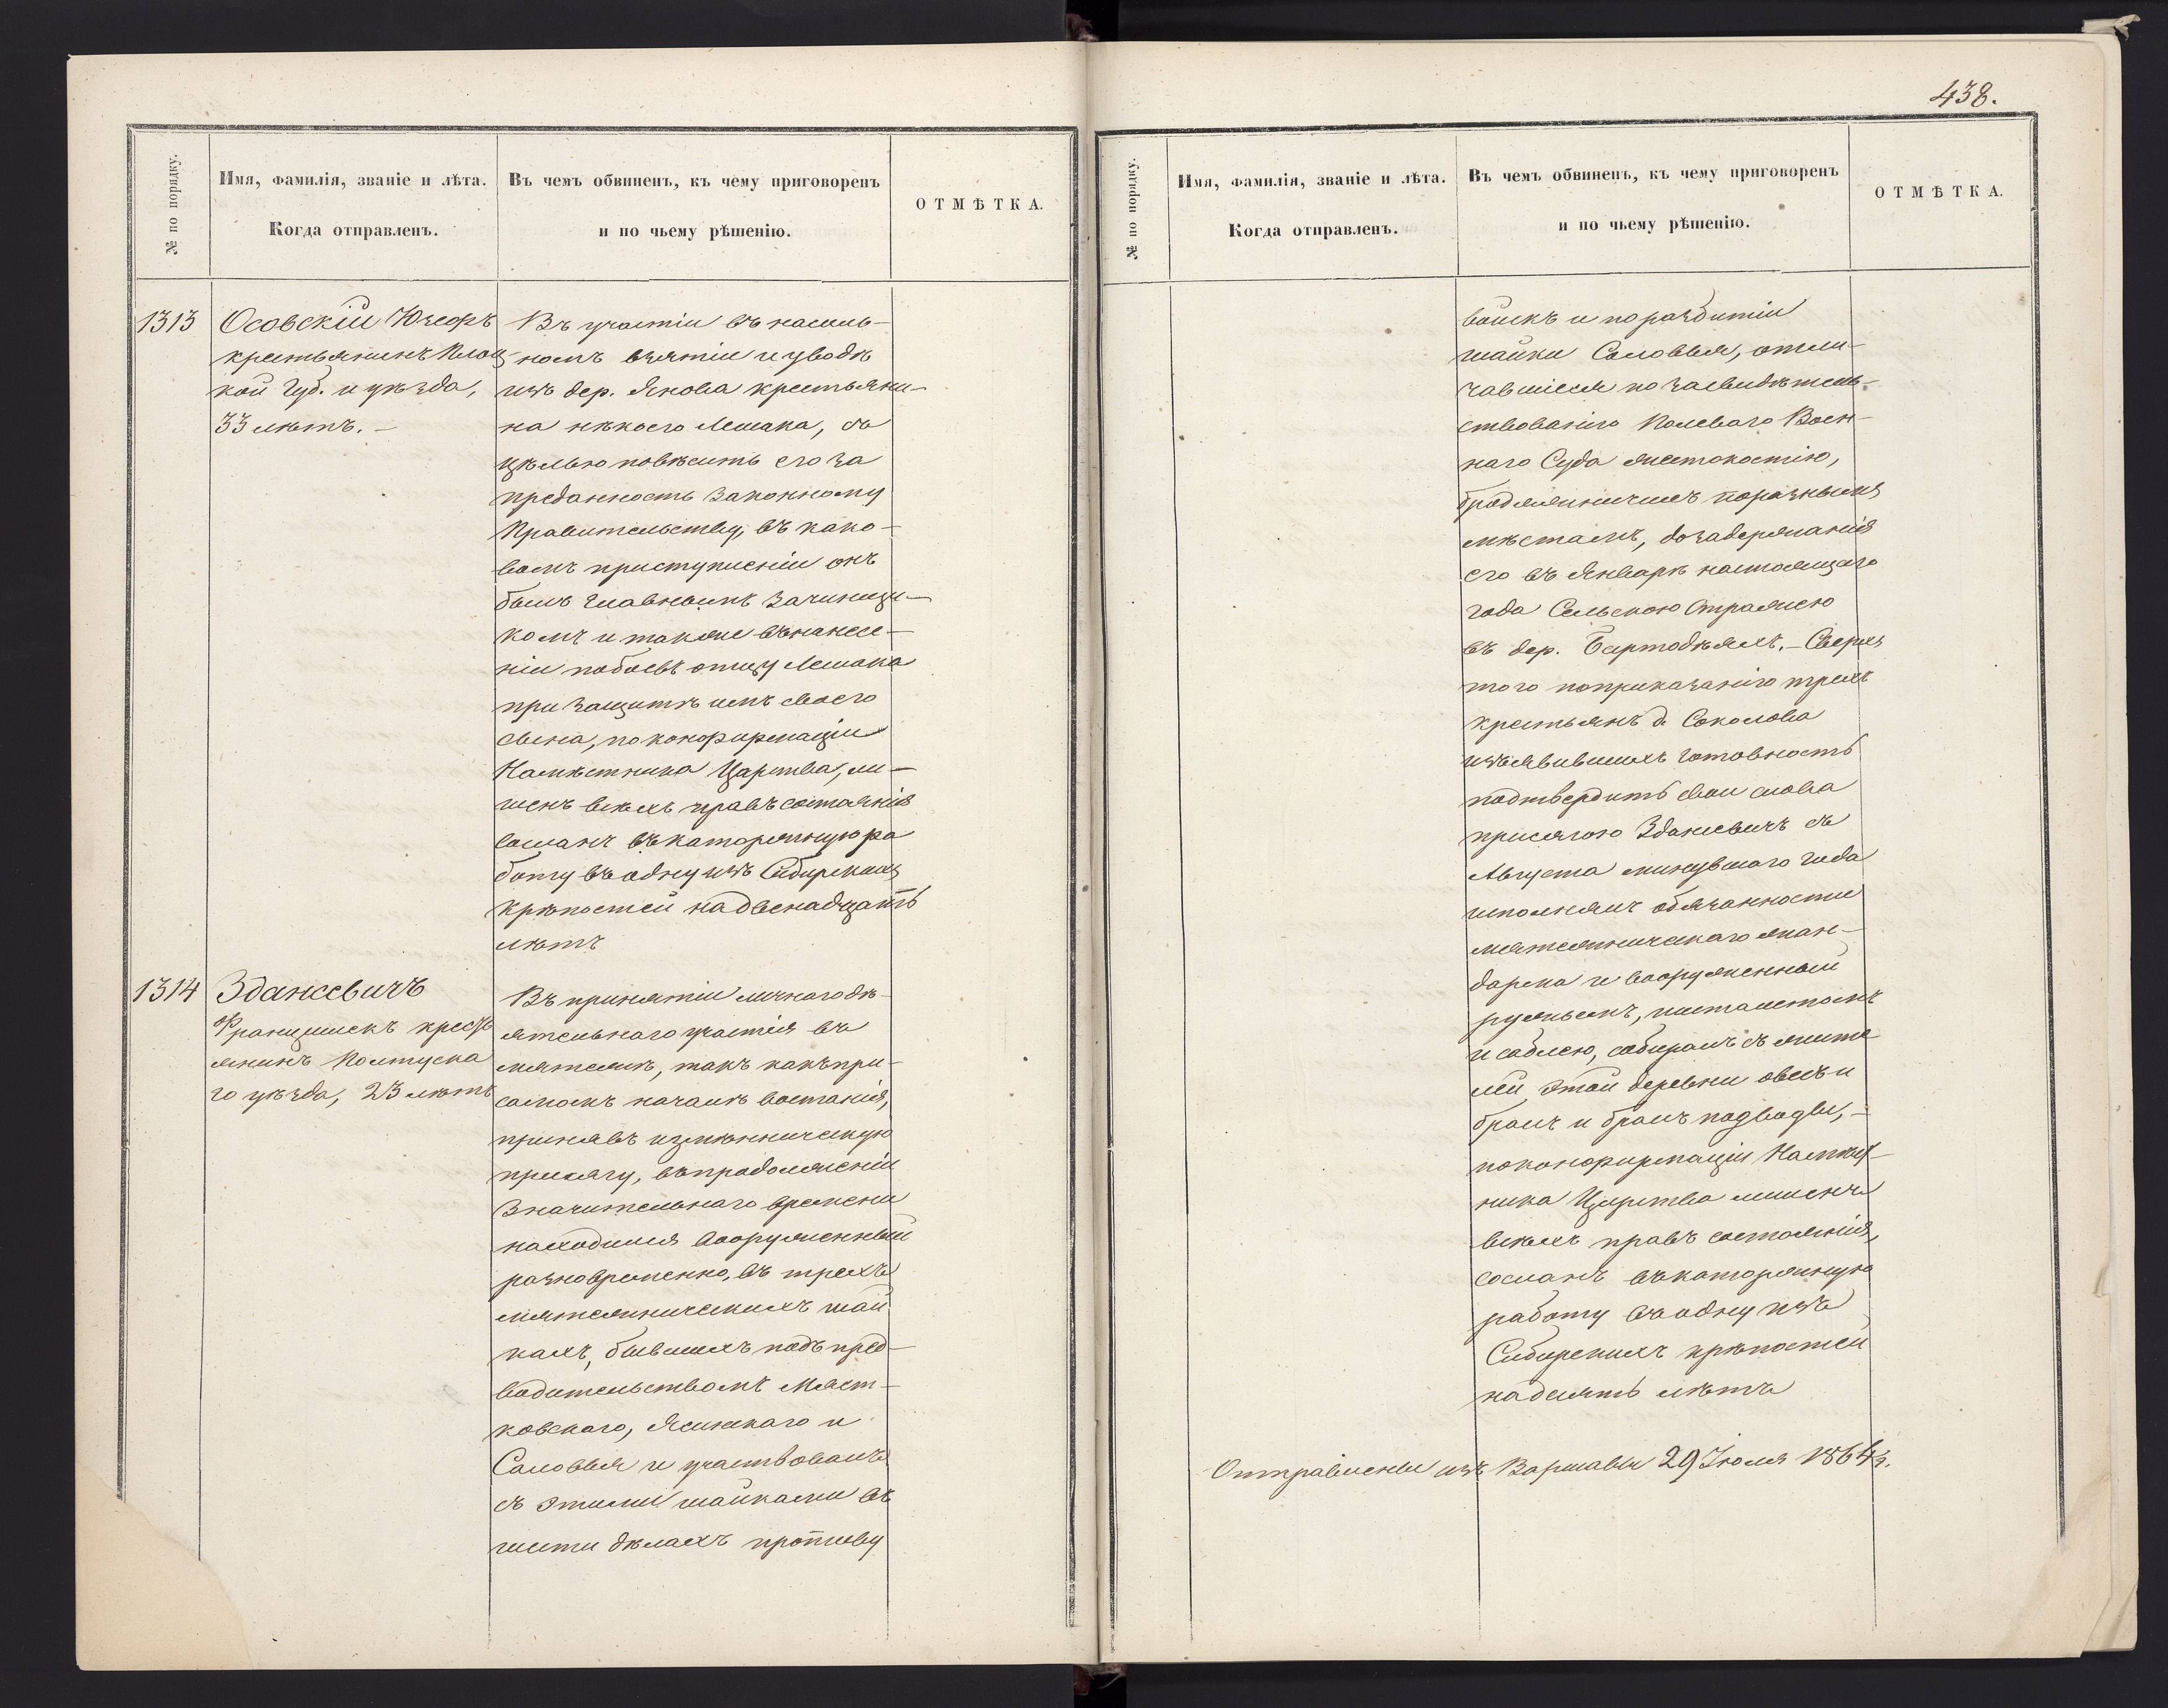 438.
№ по порядку.
Имя, фамилія, званіе и лѣта.
Когда отправленъ.
Въ чемъ обвиненъ, къ чему приговоренъ
и по чьему рѣшенію.
ОТМѢТКА.
1313
Осовскій Юзефъ
крестьянинъ Плоц-
кой Губ. и уѣзда,
33 лѣтъ. –
Въ участіи въ насиль-
номъ взятіи и уводѣ
изъ дер. Янова крестьяни-
на нѣкоего Лешака, съ
цѣлью повѣсить его за
преданность Законному
Правительству, въ како-
вомъ приступленіи онъ
былъ главнымъ Зачинщи-
комъ и также въ нанесе-
ніи побоевъ отцу Лешака
при защитѣ имъ своего
сына, по конфирмаціи
Намѣстника Царства, ли-
шенъ всѣхъ правъ состоянія
сосланъ въ каторжную ра
боту въ одну изъ Сибирскихъ
крѣпостей на двенадцать
лѣтъ
1314
Здансевичъ
Францишекъ кресть
янинъ Полтуска
го уѣзда, 23 лѣтъ
Въ принятіи личнаго дѣ-
ятельнаго участія въ
мятежѣ, такъ какъ при-
самомъ началѣ востанія,
принявъ измѣнническую
присягу, въ продолженіи
Значительнаго времени
находился вооруженный
разновременно, въ трехъ
мятежническихъ шай
кахъ, бывшихъ подъ пред-
водительствомъ Мяст-
ковскаго, Ясинскаго и
Саловья и участвовалъ
съ этими шайками въ
шести дѣлахъ противу
№ по порядку.
Имя, фамилія, званіе и лѣта.
Когда отправленъ.
Въ чемъ обвиненъ, къ чему приговоренъ
и по чьему рѣшенію.
ОТМѢТКА.
войскъ и по разбитіи
шайки Саловья, отли-
чавшіеся по засвидѣтель-
ствованію Полеваго Воен-
наго Суда жестокостію,
бродяжничилъ по разнымъ
мѣстамъ, до задержанія
его въ Январѣ настоящаго
года Сельскою Стражею
въ дер. Бартодзѣяхъ. – Сверхъ
того по приказанію трехъ
крестьянъ д. Соколова
изъявившихъ готовность
подтвердить свои слова
присягою Здансевичъ съ
Августа минувшаго года
исполнялъ обязанности
мятежническаго жан-
дарма и вооруженный
ружьемъ, пистолетомъ
и саблею, собиралъ съ жите
лей этой деревни овесъ и
бралъ и бралъ подводы, –
по конфирмаціи Намѣст-
ника Царства лишенъ
всѣхъ правъ состоянія,
сосланъ въ каторжную
работу въ одну изъ
Сибирскихъ крѣпостей
на десять лѣтъ
Отправлены изъ Варшавы 29 Іюля 1864 г.